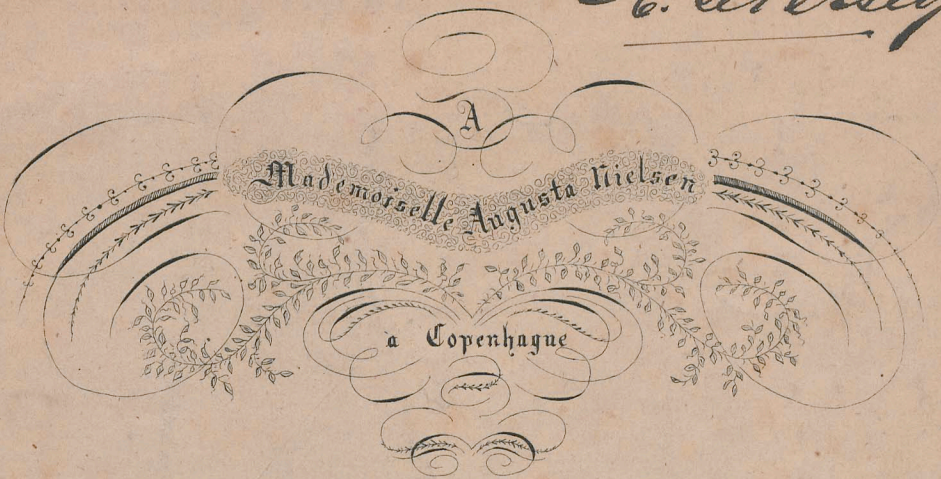 A
Mademoiselle Augusta Nielsen
à Copenhague